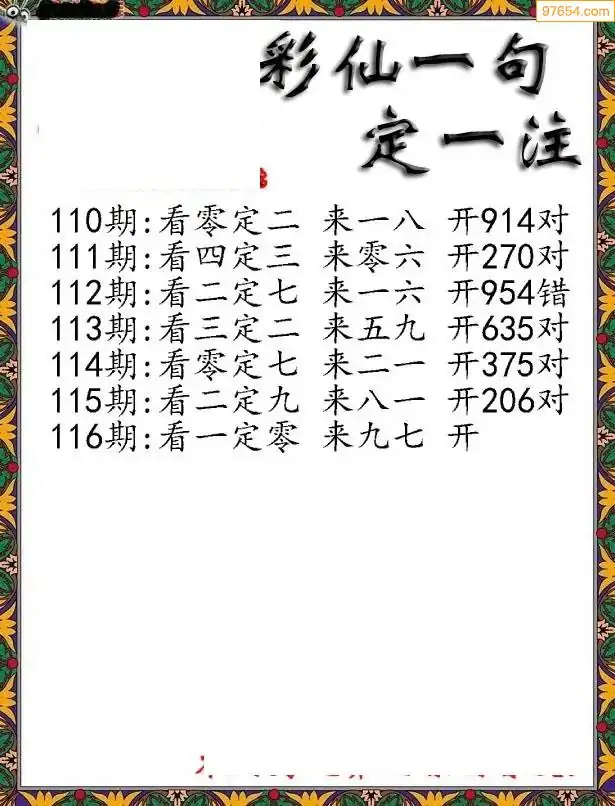 97654.com
彩仙一句
定一注
110期:看零定二 来一八 开914对
111期:看四定三 来零六 开270对
112期:看二定七 来一六 开954错
113期:看三定二 来五九 开635对
114期:看零定七 来二一 开375对
115期:看二定九 来八一 开206对
116期:看一定零 来九七 开